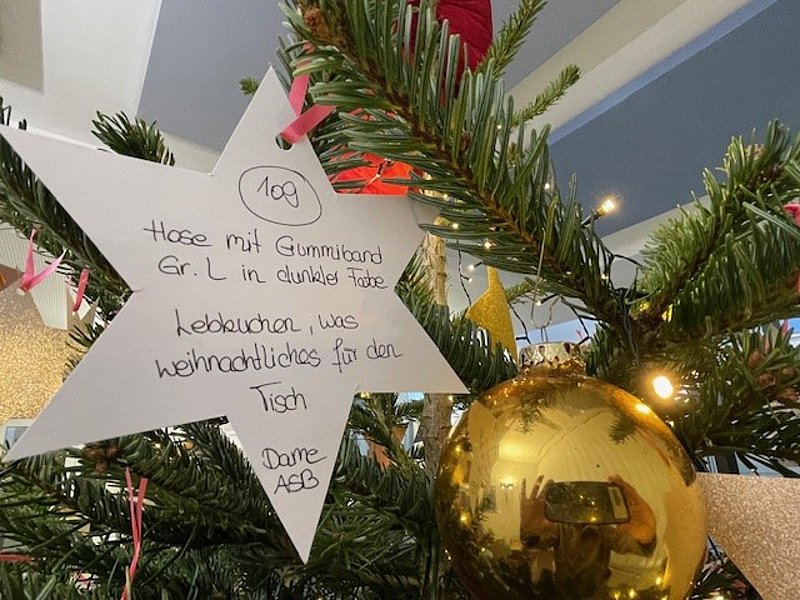 109
Hose mit Gummiband
Gr. L in dunkler Farbe
Lebkuchen, was
weihnachtliches für den
Tisch
Dame
ASB